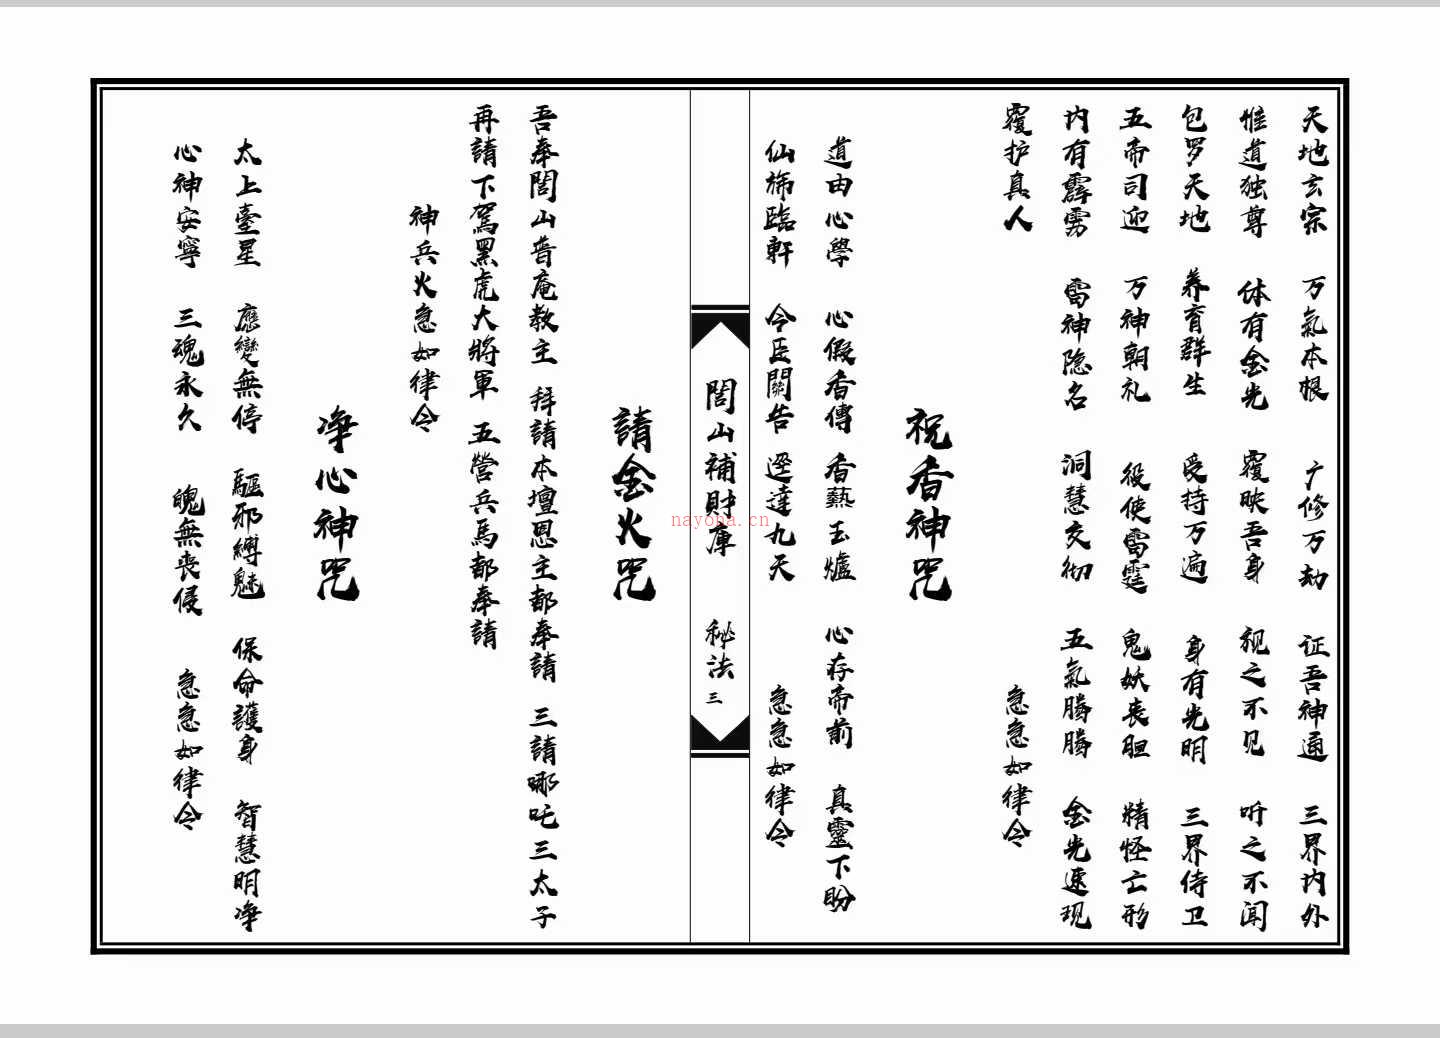 天地玄宗 万氣本根 广修万劫 证吾神通 三界内外
惟道独尊 体有金光 覆映吾身 视之不见 听之不闻
包罗天地 养育群生 受持万遍 身有光明 三界侍卫
五帝司迎 万神朝礼 役使雷霆 鬼妖丧胆 精怪亡形
内有霹雳 雷神隐名 洞慧交彻 五氣騰騰 金光速现
覆护真人 急急如律令
祝香神咒
道由心學 心假香傳 香爇玉爐 心存帝前 真靈下盼
仙旆臨軒 令臣關告 逕達九天 急急如律令
閭山補財庫 秘法 三
請金火咒
吾奉閭山普庵教主 拜請本壇恩主都奉請 三請哪吒三太子
再請下駕黑虎大將軍 五營兵馬都奉請
神兵火急如律令
净心神咒
太上臺星 應變無停 驅邪縛魅 保命護身 智慧明净
心神安寧 三魂永久 魄無丧侵 急急如律令
nayona.cn